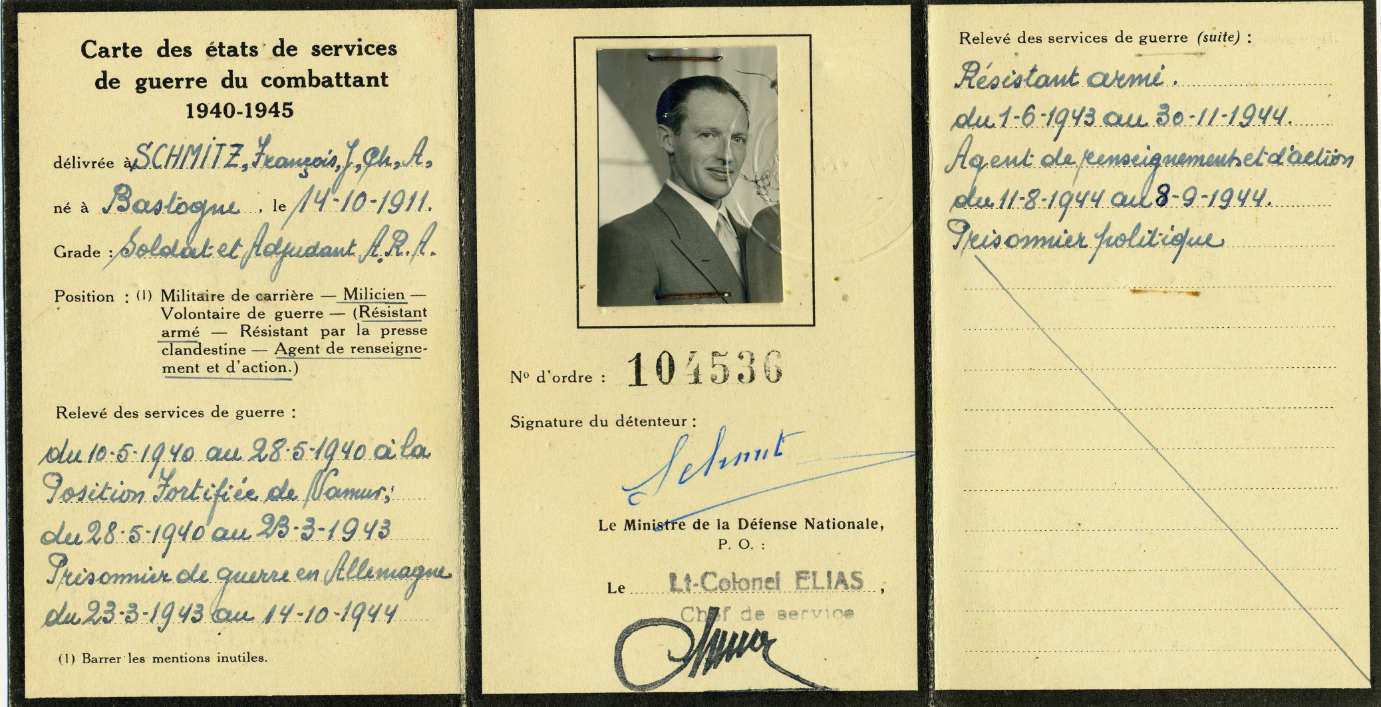 Carte des états de services
de guerre du combattant
1940-1945
délivrée à SCHMITZ, François, J, Ch, A,
né à Bastogne, le 14-10-1911.
Grade : Soldat et Adjudant A.R.A.
Position : (1) Militaire de carrière — Milicien —
Volontaire de guerre — (Résistant
armé — Résistant par la presse
clandestine — Agent de renseigne-
ment et d'action.)
Relevé des services de guerre :
du 10-5-1940 au 28-5-1940 à la
Position Fortifiée de Namur;
du 28-5-1940 au 23-3-1943
Prisonnier de guerre en Allemagne
du 23-3-1943 au 14-10-1944
(1) Barrer les mentions inutiles.
No d'ordre : 104536
Signature du détenteur :
Le Ministre de la Défense Nationale,
P. O. :
Le Lt-Colonel ELIAS,
Chef de service
Relevé des services de guerre (suite) :
Résistant armé.
du 1-6-1943 au 30-11-1944.
Agent de renseignement et d'action
du 11-8-1944 au 8-9-1944.
Prisonnier politique